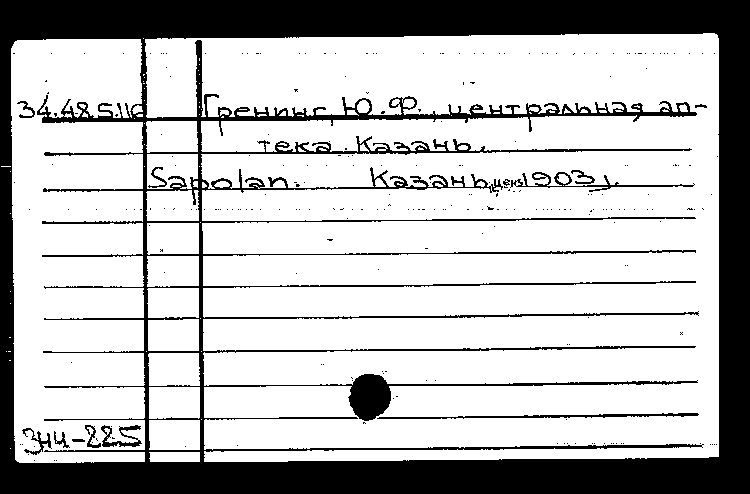 34.48.5.116 Гренинг, Ю.Ф., центральная ап-
тека. Казань.
Sapolan. Казань, ценз. 1903 г.
Энц-225